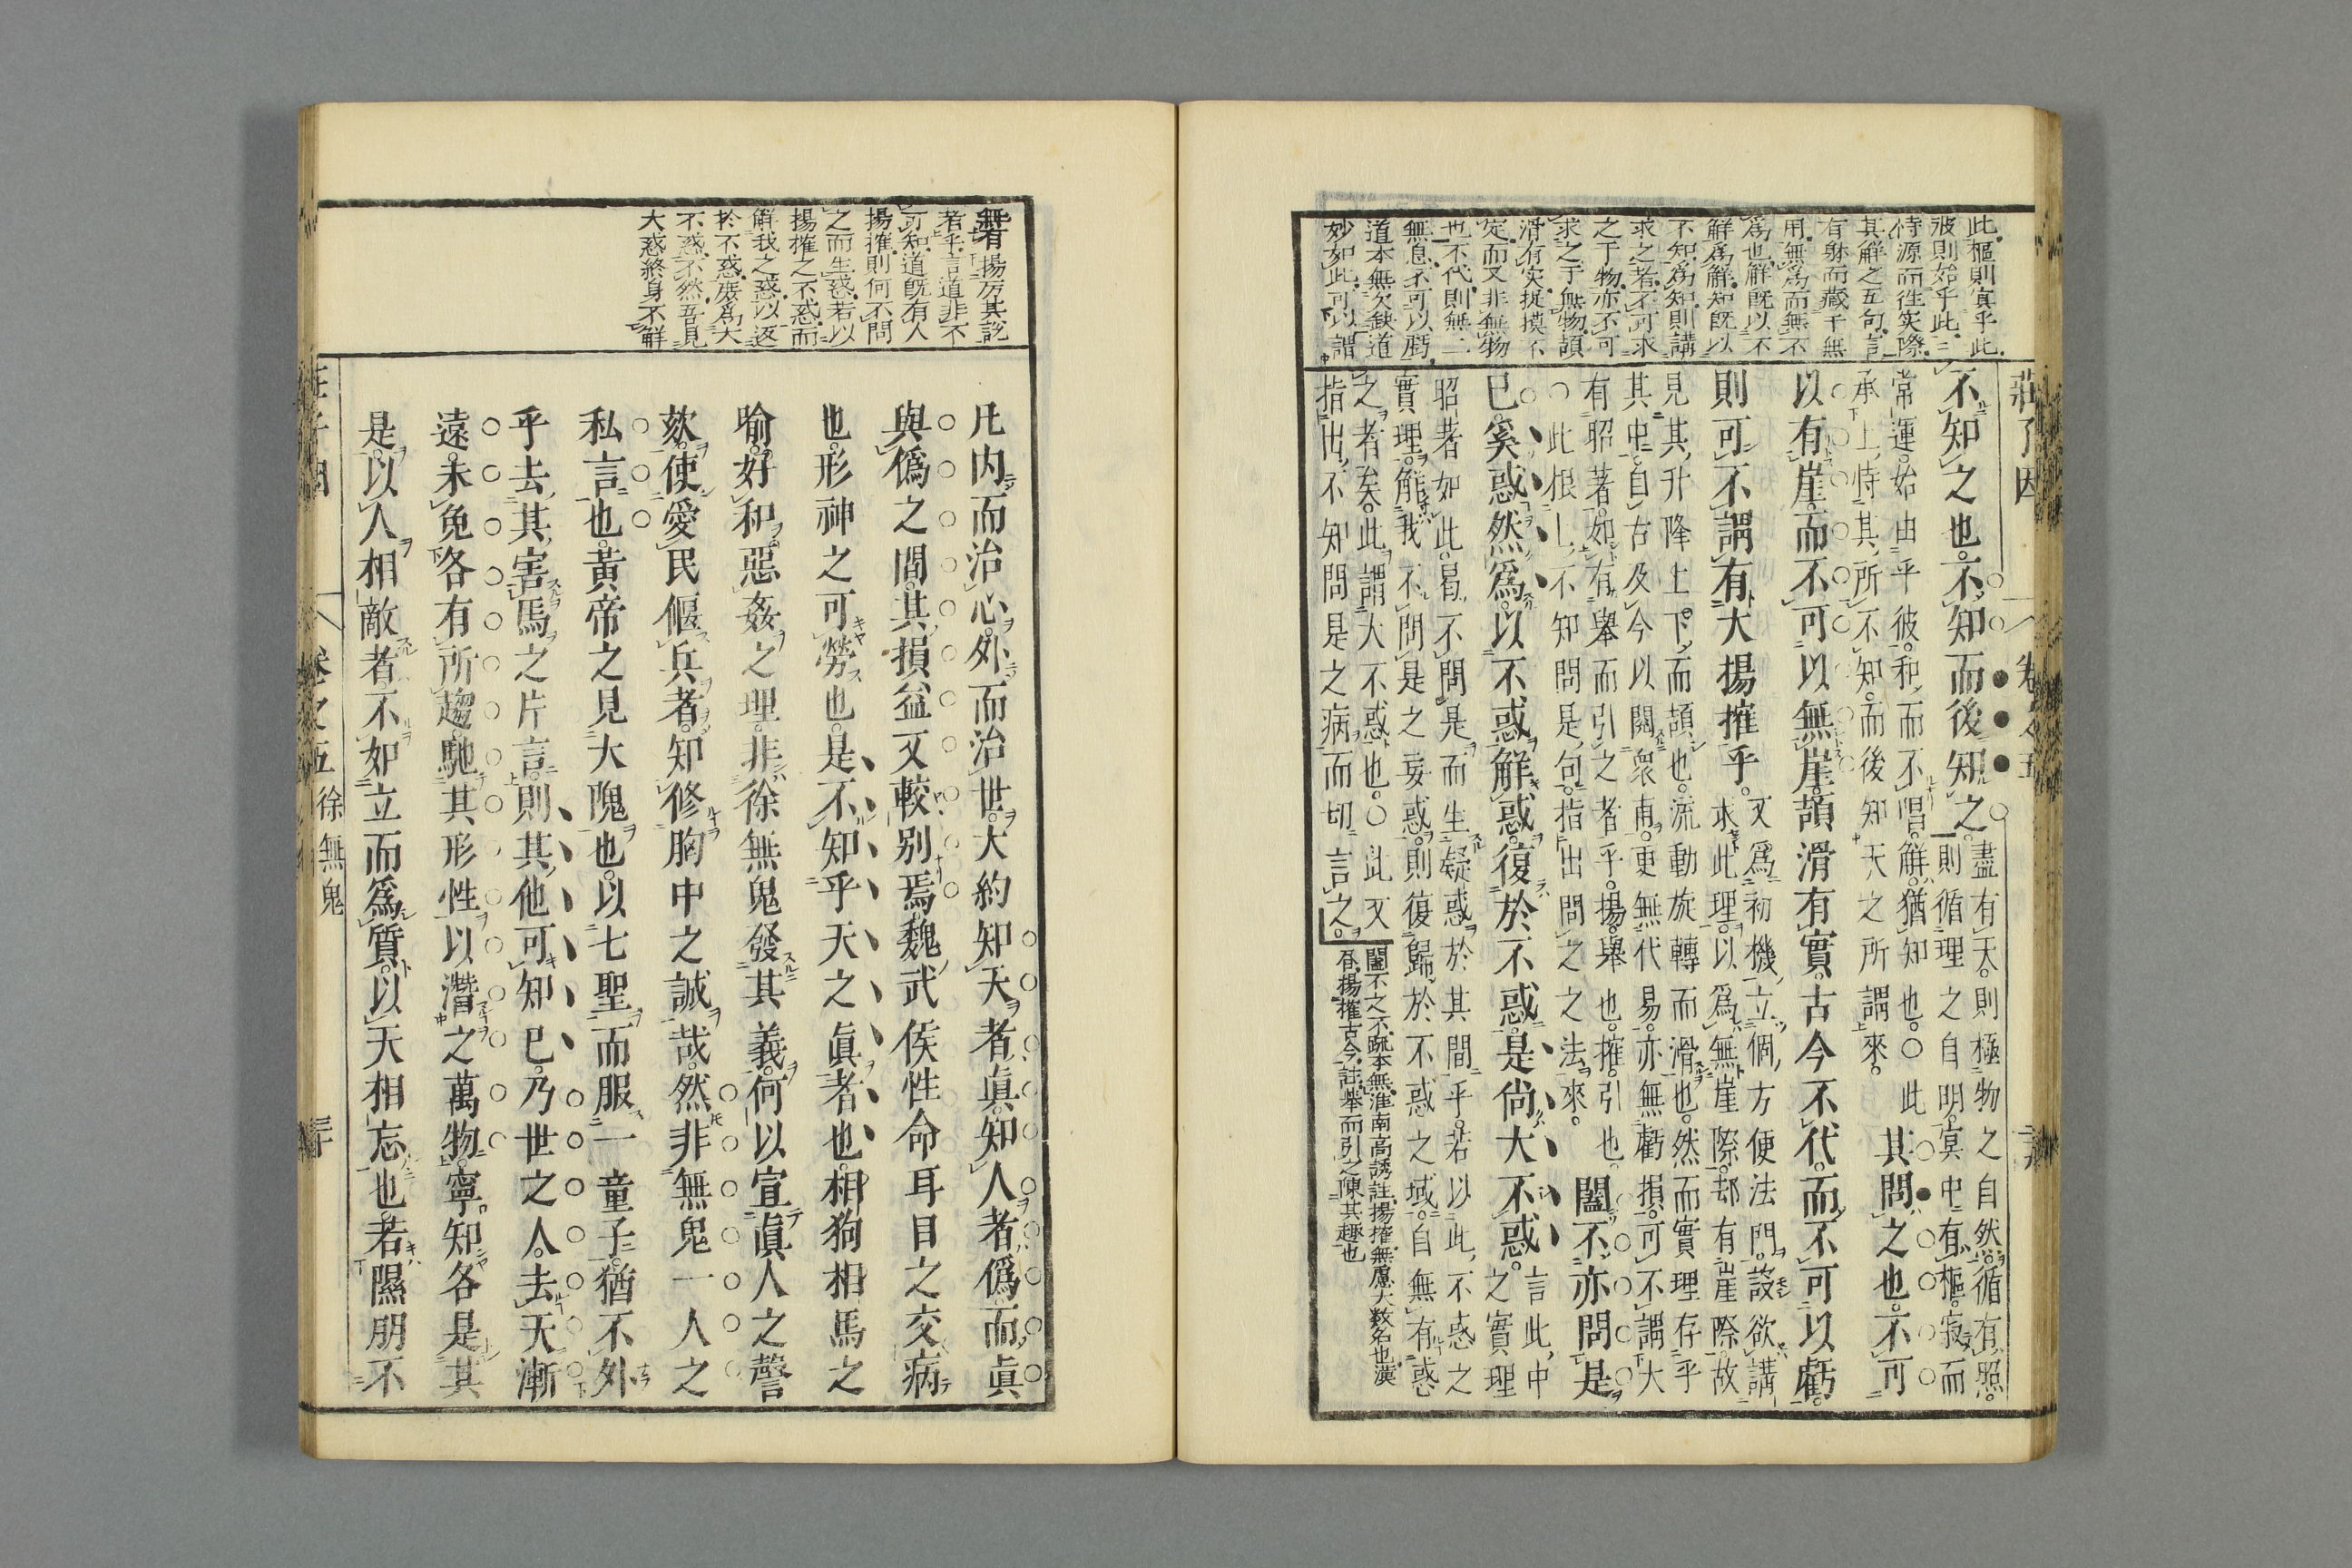 莊子因
卷之五
此樞則寘乎此
彼則始乎此三
侍源而徃实際
其解之五句言
有躰而藏于無
用無爲而無不
爲也解既以不
解爲解知既以
不知爲知則講
求之者不可求
之于物亦不可
求之于無物頡
滑有实捉摸不
定而又非無物
也不代則無二
無息不可以虧
道本無欠缺道
妙如此可以謂
不知之也不知而後知之盡有天則極物之自然循有照
則循理之自明冥中有樞寂而
常運始由乎彼和而不唱解猶知也○此
承上恃其所不知而後知天之所謂來
其問之也不可
以有崖而不可以無崖頡滑有實古今不代而不可以虧
則可不謂有大揚搉乎
又爲初機立個方便法門設欲講
求此理以爲無崖際却有崖際故
見其升降上下而頡也流動旋轉而滑也然而實理存乎
其中自古及今以閱衆甫更無代易亦無虧損可不謂大
有昭著如有舉而引之者乎揚舉也搉引也
○此根上不知問是句指出問之之法來
闔不亦問是
已奚惑然爲以不惑解惑復於不惑是尚大不惑
言此中
之實理
昭著如此曷不問是而生疑惑於其間乎若以此不惑之
實理解我不問是之妄惑則復歸於不惑之域自無有惑
之者矣此謂大不惑也○此又
指出不知問是之病而切言之
闔不之不疏本無淮南高誘註揚搉無慮大数名也漢
揚搉古今註舉而引之陳其趣也
無有揚厉其說
者乎言道非不
可知道既有人
揚搉則何不問
之而生惑若以
揚搉之不惑而
解我之惑以返
於不惑庻爲大
不惑不然吾見
大惑終身不解
凡内而治心外而治世大約知天者眞知人者僞而眞
與僞之間其損益又較別焉魏武侯性命耳目之交病
也形神之可勞也是不知乎天之眞者也相狗相馬之
喻好和惡姦之理非徐無鬼發其義何以宣眞人之謦
欬使愛民偃兵者知修胸中之誠哉然非無鬼一人之
私言也黃帝之見大隗也以七聖而服一童子猶不外
乎去其害馬之片言則其他可知已乃世之人去天漸
遠未免各有所趨馳其形性以潛之萬物寧知各是其
是以人相敵者不如立而爲質以天相忘也若隰朋不
卷之五
徐無鬼